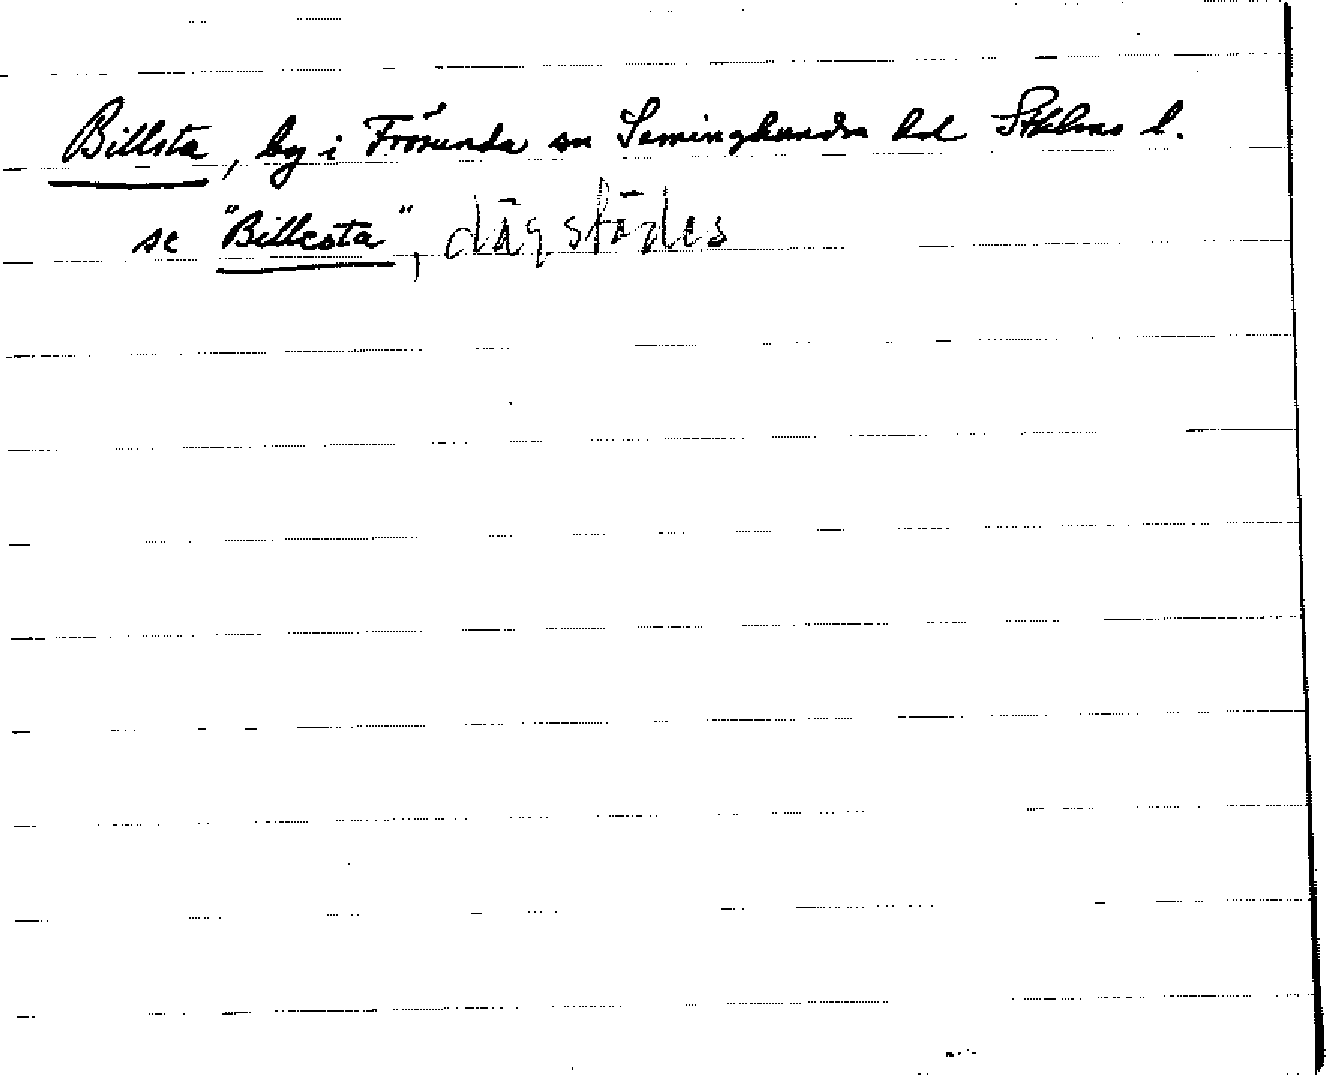 Billsta, by i Frösunda sn Seminghundra hd Sthlms l.
se "Billesta", därstädes